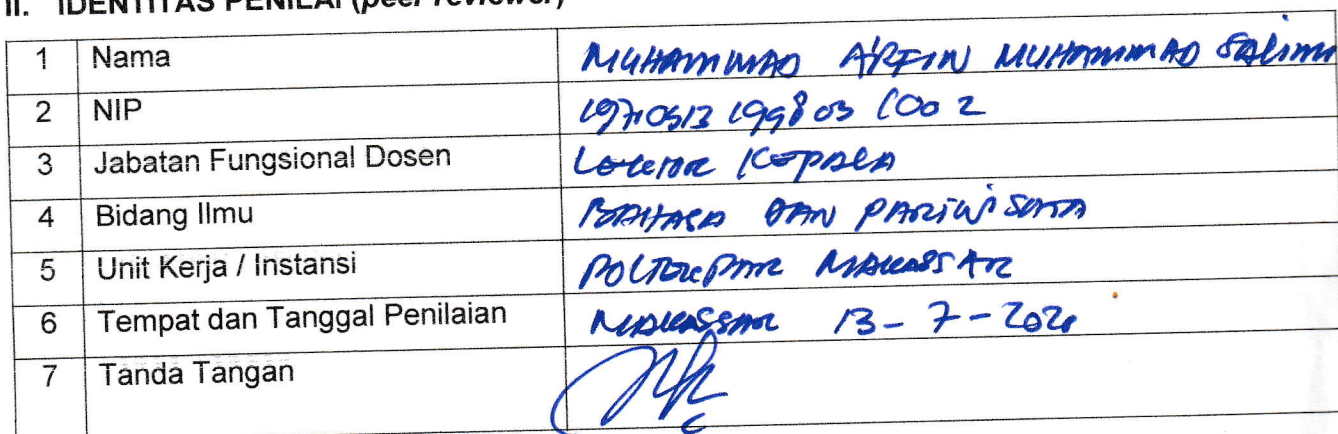 II. IDENTITAS PENILAI (peer reviewer)
1 Nama MUHAMMAD ARFIN MUHAMMAD SALIM
2 NIP 19710513 199803 1002
3 Jabatan Fungsional Dosen LEKTOR KEPALA
4 Bidang Ilmu BAHASA DAN PARIWISATA
5 Unit Kerja / Instansi POLTEKPAR MAKASSAR
6 Tempat dan Tanggal Penilaian MAKASSAR 13-7-2020
7 Tanda Tangan